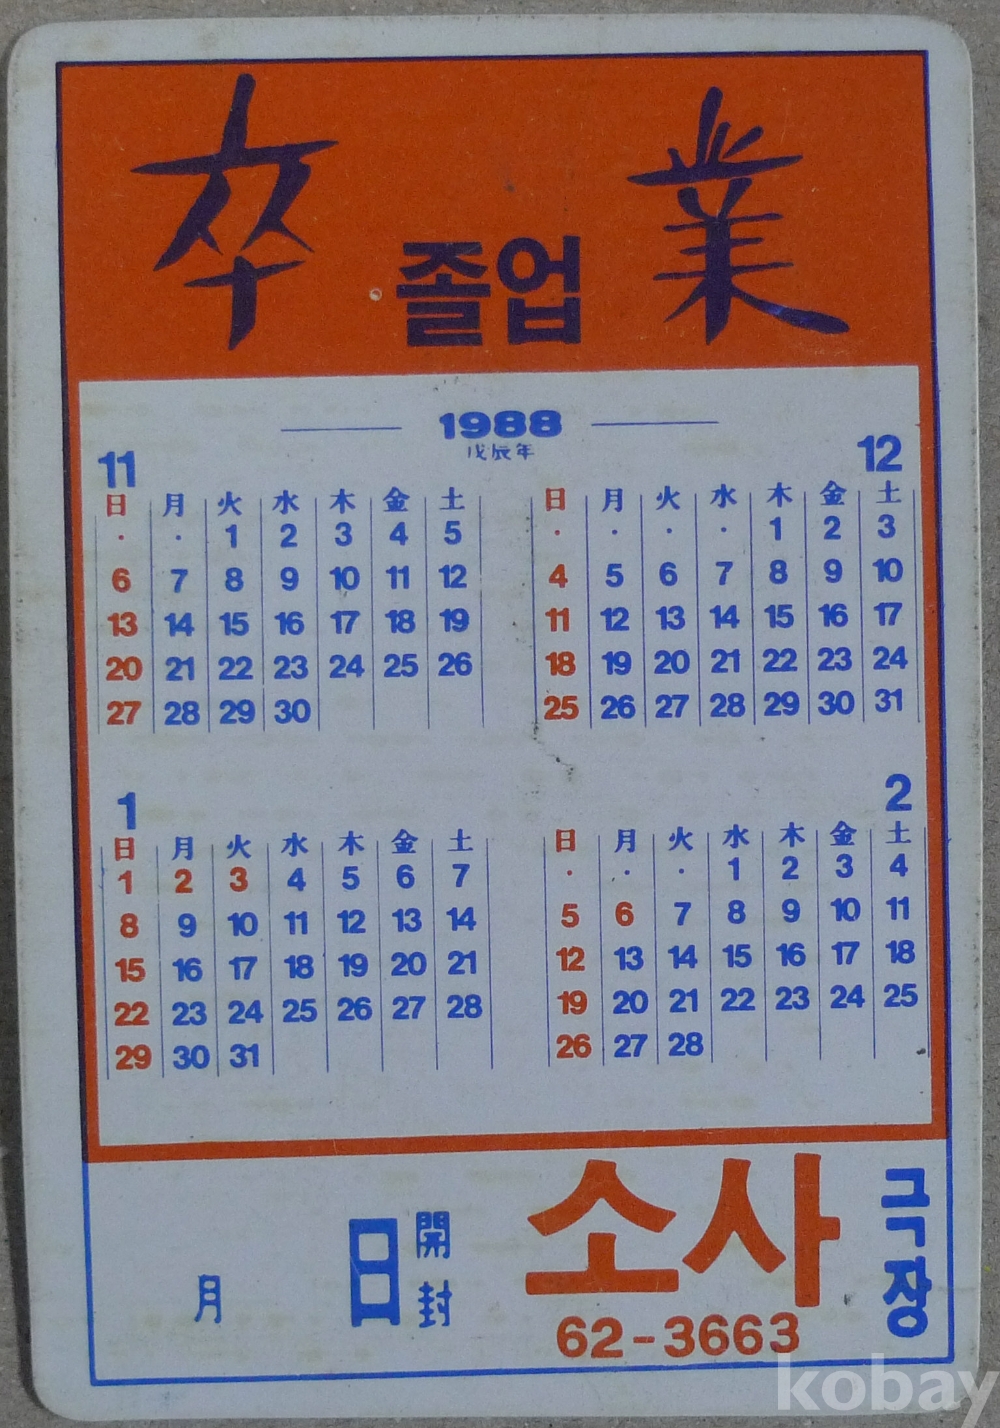 卒 졸업 業
1988
戊辰年
11
日 月 火 水 木 金 土
· · 1 2 3 4 5
6 7 8 9 10 11 12
13 14 15 16 17 18 19
20 21 22 23 24 25 26
27 28 29 30
12
日 月 火 水 木 金 土
· · · · 1 2 3
4 5 6 7 8 9 10
11 12 13 14 15 16 17
18 19 20 21 22 23 24
25 26 27 28 29 30 31
1
日 月 火 水 木 金 土
1 2 3 4 5 6 7
8 9 10 11 12 13 14
15 16 17 18 19 20 21
22 23 24 25 26 27 28
29 30 31
2
日 月 火 水 木 金 土
· · · 1 2 3 4
5 6 7 8 9 10 11
12 13 14 15 16 17 18
19 20 21 22 23 24 25
26 27 28
月 日 開封
소사 극장
62-3663
kobay